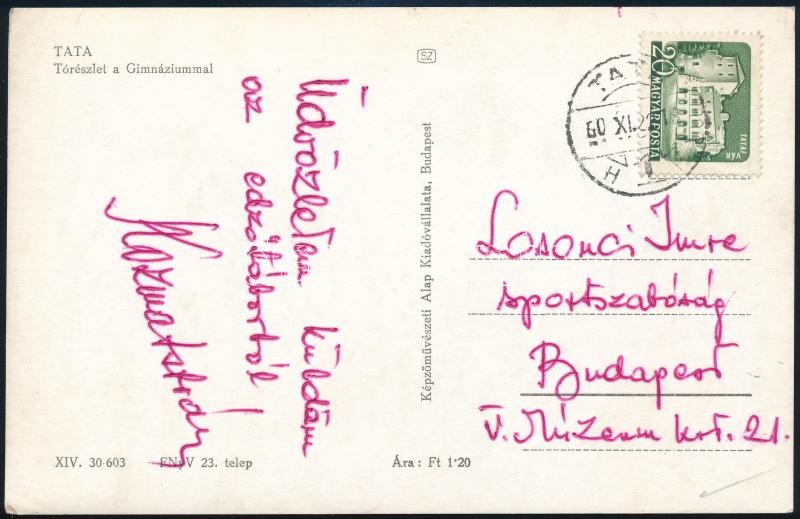 TATA
Tórészlet a Gimnáziummal
SZ
Üdvözletem küldöm
az edzőtáborból
Kozma István
Képzőművészeti Alap Kiadóvállalata, Budapest
20
MAGYAR POSTA
TATAI VÁR
Losonci Imre
sportszabóság
Budapest
V. Múzeum krt. 21.
XIV. 30·603
23. telep
Ára: Ft 1·20